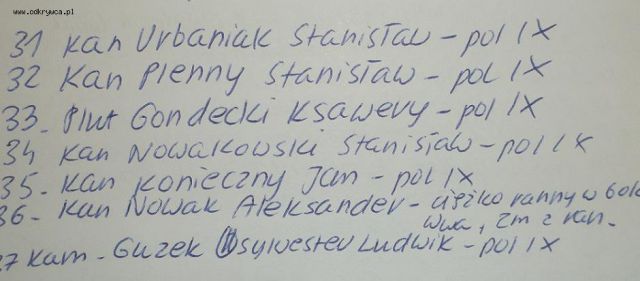 www.odkrywca.pl
31 Kan Urbaniak Stanisław - pol IX
32 Kan Plenny Stanisław - pol IX
33 - Plut Gondecki Ksawery - pol IX
34 Kan Nowakowski Stanisław - pol IX
35 - Kan Konieczny Jan - pol IX
36 - Kan Nowak Aleksander - ciężko ranny w bok
Wwa, zm z ran.
37 Kan - Guzek Sylwester Ludwik - pol IX